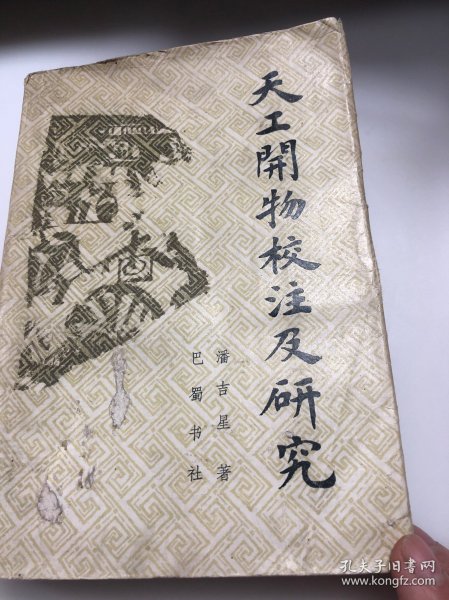 天工開物校注及研究
潘吉星著
巴蜀书社
孔夫子旧书网
www.kongfz.com